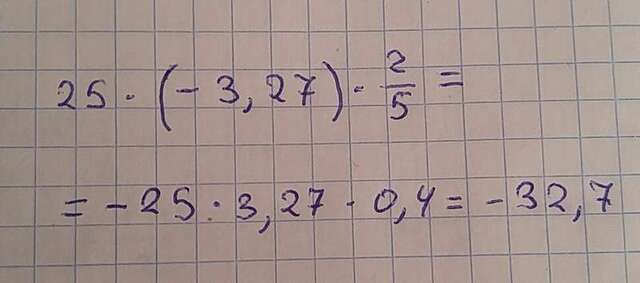 25 · (- 3,27) · 2/5 =
= - 25 · 3,27 · 0,4 = - 32,7